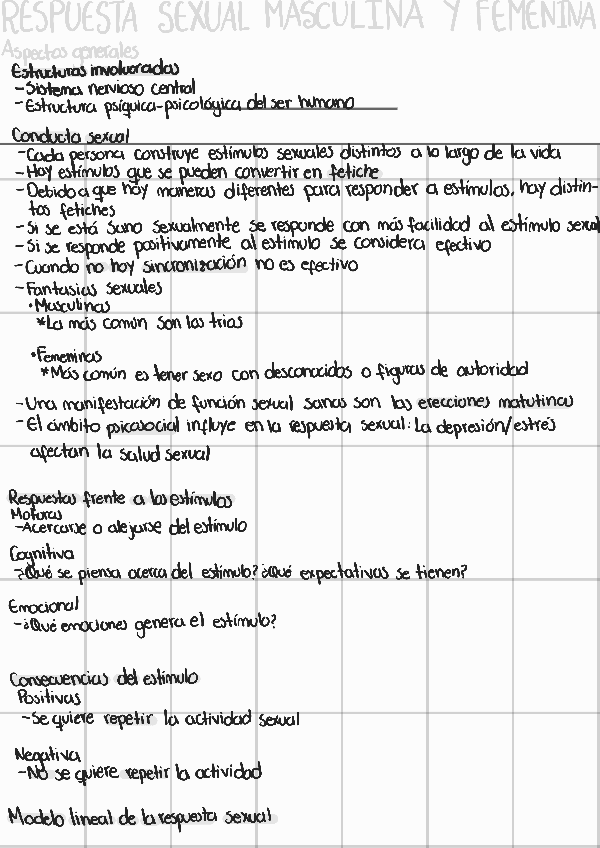 RESPUESTA SEXUAL MASCULINA Y FEMENINA
Aspectos generales
Estructuras involucradas
-Sistema nervioso central
-Estructura psíquica-psicológica del ser humano
Conducta sexual
-Cada persona construye estímulos sexuales distintos a lo largo de la vida
-Hay estímulos que se pueden convertir en fetiche
-Debido a que hay maneras diferentes para responder a estímulos, hay distin-
tos fetiches
-Si se está sano sexualmente se responde con más facilidad al estímulo sexual
-Si se responde positivamente al estímulo se considera efectivo
-Cuando no hay sincronización no es efectivo
-Fantasías sexuales
•Masculinas
*La más común son los tríos
•Femeninas
*Más común es tener sexo con desconocidos o figuras de autoridad
-Una manifestación de función sexual sanas son las erecciones matutinas
-El ámbito psicosocial influye en la respuesta sexual: La depresión/estrés
afectan la salud sexual
Respuestas frente a los estímulos
Motoras
-Acercarse o alejarse del estímulo
Cognitiva
-¿Qué se piensa acerca del estímulo? ¿Qué expectativas se tienen?
Emocional
-¿Qué emociones genera el estímulo?
Consecuencias del estímulo
Positivas
-Se quiere repetir la actividad sexual
Negativa
-No se quiere repetir la actividad
Modelo lineal de la respuesta sexual